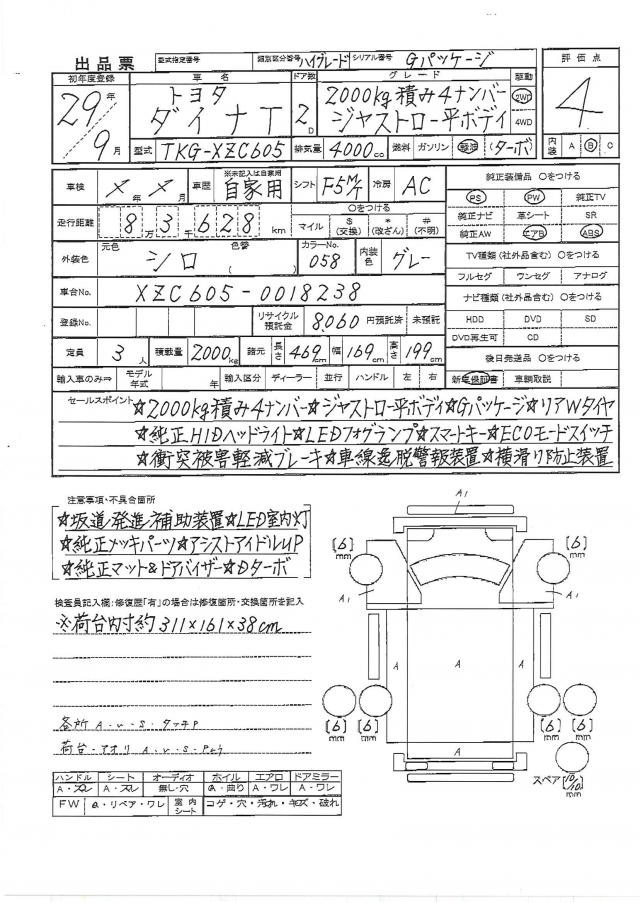 出品票 型式指定番号 類別区分番号 ハイグレード シリアル番号 Gパッケージ
初年度登録 車名 ドア数 グレード 駆動 評価点
29年 トヨタ 2D 2000kg積み4ナンバー 2WD 4
9月 ダイナT ジャストロー平ボディ 4WD
型式 TKG-XZC605 排気量 4000cc 燃料 ガソリン 軽油 (ターボ) 内装 A B C
車検 X年X月 車歴 ※未記入は自家用 自家用 シフト F5M/T 冷房 AC 純正装備品 〇をつける
PS PW 純正TV
走行距離 8万3千628km 〇をつける マイル $(交換) *(改ざん) #(不明) 純正ナビ 革シート SR
純正AW エアB ABS
外装色 元色 シロ 色替 ( ) カラーNo. 058 内装色 グレー TV種類(社外品含む)〇をつける
フルセグ ワンセグ アナログ
車台No. XZC605-0018238 ナビ種類(社外品含む)〇をつける
登録No. リサイクル預託金 8,060 円預託済 未預託 HDD DVD SD
DVD再生可 CD
定員 3人 積載量 2000kg 諸元 長さ 469cm 幅 169cm 高さ 199cm 後日発送品 〇をつける
輸入車のみ⇒ モデル年式 年 輸入区分 ディーラー 並行 ハンドル 左 右 新車保証書 車輌取説
セールスポイント ☆2000kg積み4ナンバー☆ジャストロー平ボディ☆Gパッケージ☆リアWタイヤ
☆純正HIDヘッドライト☆LEDフォグランプ☆スマートキー☆ECOモードスイッチ
☆衝突被害軽減ブレーキ☆車線逸脱警報装置☆横滑り防止装置
注意事項・不具合箇所
☆坂道発進補助装置☆LED室内灯
☆純正メッキパーツ☆アシストアイドルUP
☆純正マット&ドアバイザー☆Dターボ
検査員記入欄:修復歴「有」の場合は修復箇所・交換箇所を記入
※荷台内寸約311×161×38cm
各所 A・U・S・タッチP
荷台・アオリ A・U・S・P
A1
[6]mm [6]mm
A1 A1
A A A
[6]mm [6]mm [6]mm [6]mm
A
スペア [10/10]mm
ハンドル シート オーディオ ホイル エアロ ドアミラー
A・スレ A・スレ 無し・穴 A・曲り A・ワレ A・ワレ
FW A・リペア・ワレ 室内シート コゲ・穴・汚れ・キズ・破れ